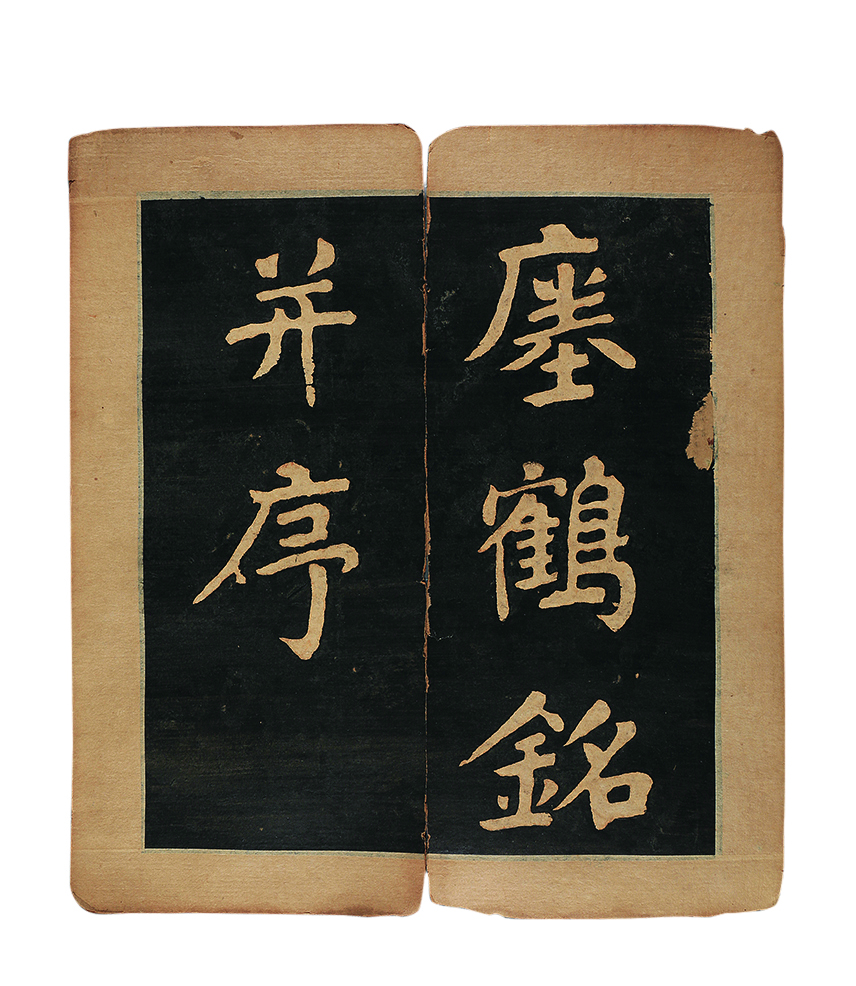 瘞鶴銘
并序